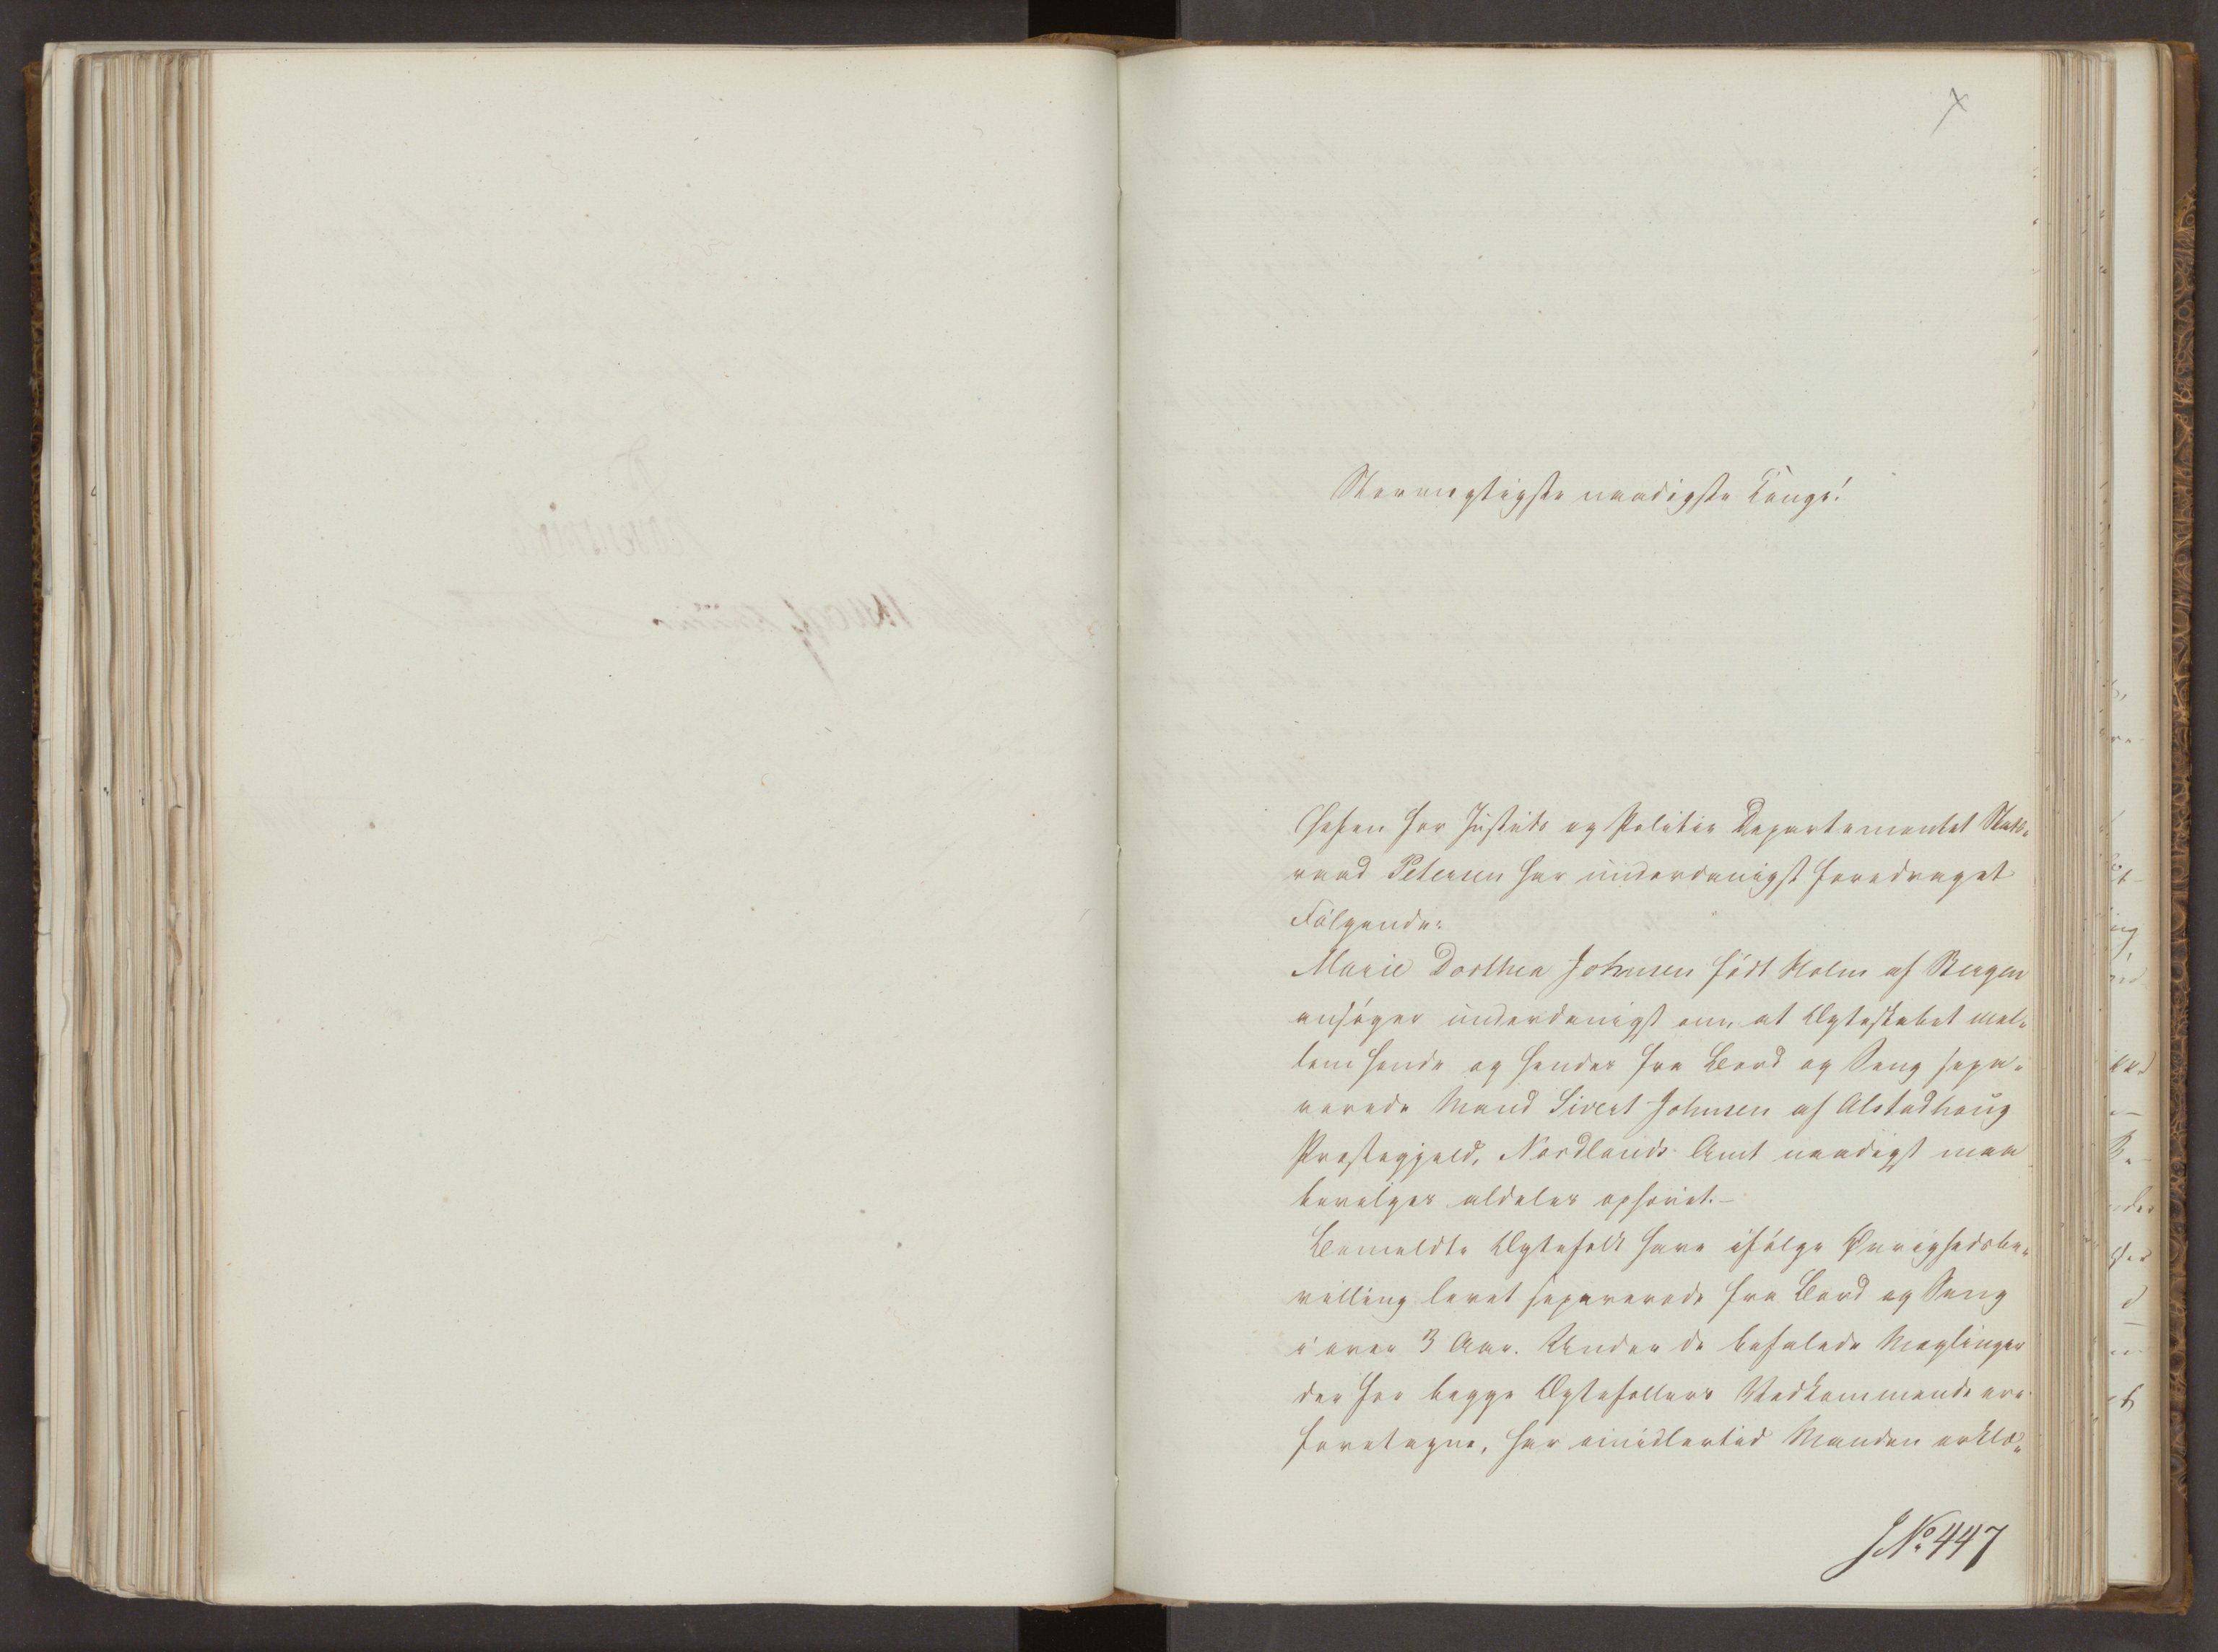 Stormægtigste naadigste Konge!
Chefen for Justits og Politie Departementet Stats-
raad Petersen har underdanigst foredraget
Følgende:
Marie Dorthea Johnsen født Holm af Bergen
ansøger underdanigst om, at Ægteskabet mel-
lem hende og hendes fra Bord og Seng sepa-
rerede Mand Sivert Johnsen af Alstadhoug
Præstegjeld, Nordlands Amt naadigst maa
bevilges aldeles ophævet.-
Bemeldte Ægtefolk have ifølge Øvrighedsbe-
villing levet separerede fra Bord og Seng
i over 3 Aar. Under de befalede Mæglinger
der for begge Ægtefællers Vedkommende ere
foretagne, har imidlertid Manden erklæ-
J No 447